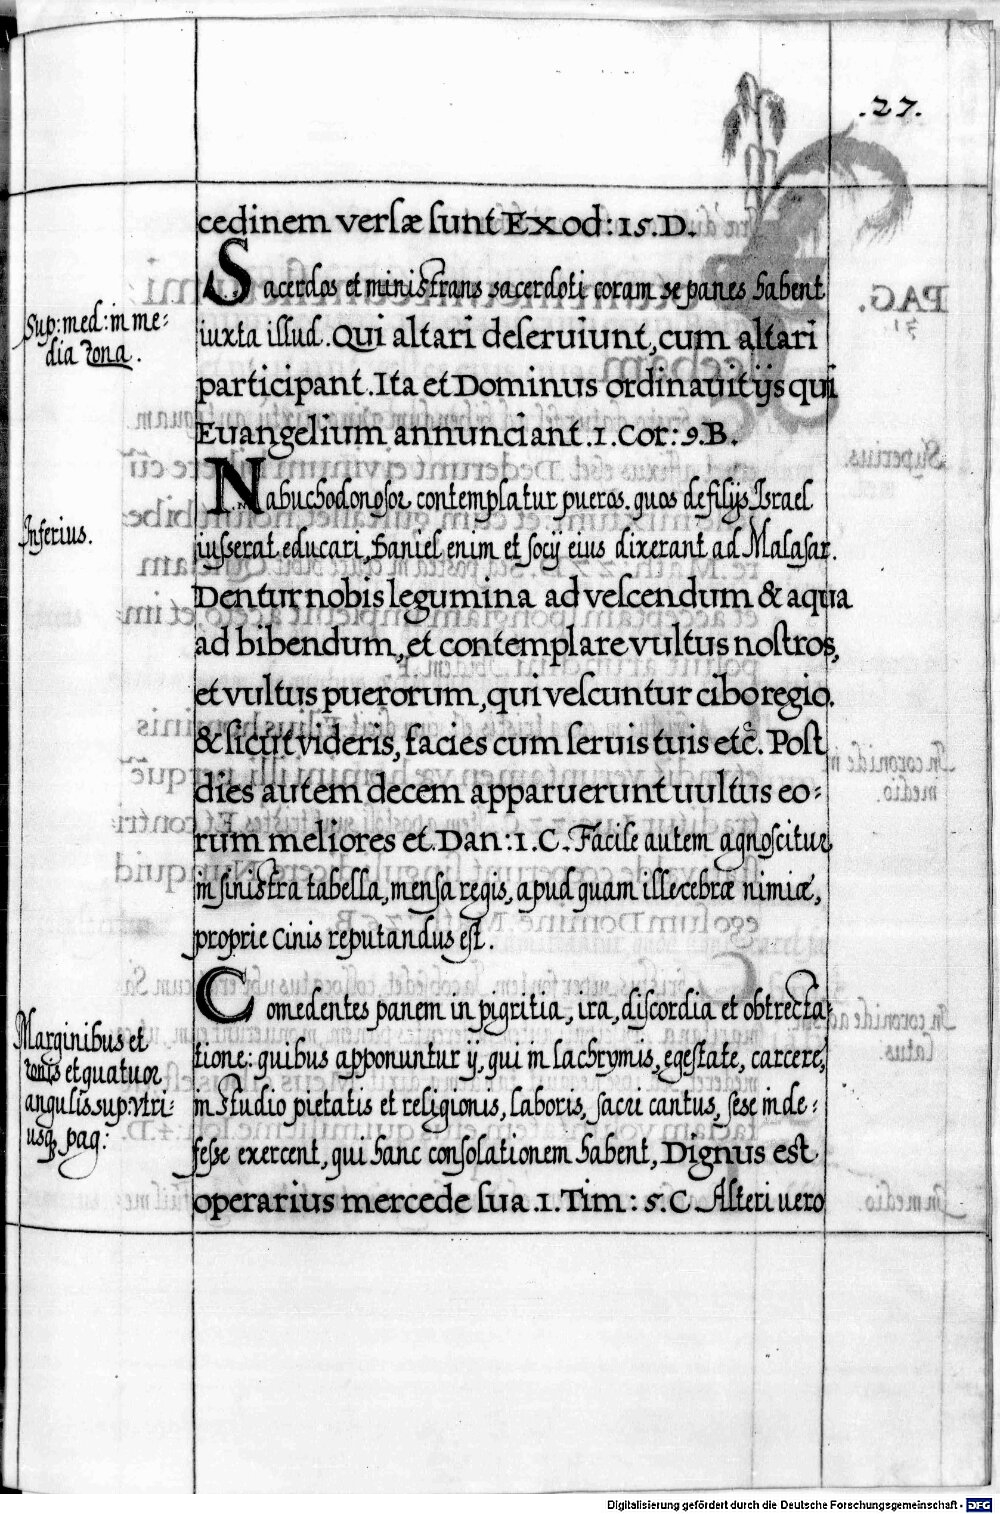 .27.
cedinem versæ sunt Exod: 15. D.
Sacerdos et ministrans sacerdoti coram se panes habent
Sup: med: in me:
dia zona.
iuxta illud. Qui altari deseruiunt, cum altari
participant. Ita et Dominus ordinauit ijs qui
Euangelium annunciant. 1. Cor: 9. B.
Nabuchodonosor contemplatur pueros. quos de filijs Israel
Inferius.
iusserat educari, Daniel enim et socij eius dixerant ad Malasar.
Dentur nobis legumina ad vescendum & aqua
ad bibendum, et contemplare vultus nostros,
et vultus puerorum, qui vescuntur cibo regio.
& sicut videris, facies cum seruis tuis etc. Post
dies autem decem apparuerunt uultus eo:
rum meliores et. Dan: 1. C. Facile autem agnoscitur
in sinistra tabella, mensa regis, apud quam illecebræ nimiæ,
proprie cinis reputandus est.
Comedentes panem in pigritia, ira, discordia et obtrecta
Marginibus et
zonis et quatuor
angulis sup: vtri:
usq; pag:
tione: quibus apponuntur ij, qui in lachrymis, egestate, carcere,
in studio pietatis et religionis, laboris, sacri cantus, sese inde:
fesse exercent, qui hanc consolationem habent, Dignus est
operarius mercede sua. 1. Tim: 5. C. Alteri uero
Digitalisierung gefördert durch die Deutsche Forschungsgemeinschaft - DFG